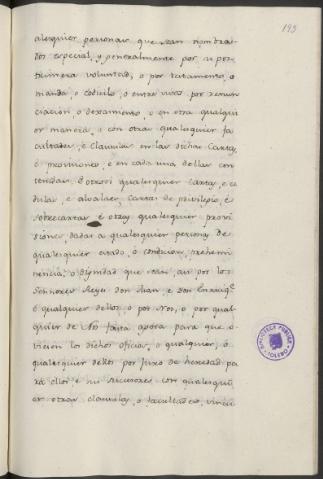 193
alesquier personas que sean nombra-
dos especial, y generalmente por u pos-
trimera voluntad, o por testamento, o
manda, o codicilo, o entre vivos por renun
ciacion, o dexamiento, o en otra qualqui
er manera, o con otras qualesquier fa
cultades, e clausulas en las dichas Cartas,
e provisiones, e en cada una dellas con
tenidas, E otrosi qualesquier cartas, e ce
dulas, e alvalaes, cartas de privilegio, e
sobrecartas e otras qualesquier provi
siones, dadas a qualesquier personas de
qualesquier estado, o condicion, prehemi
nencia, o dignidad que sean, asi por los
Señores Reyes don Juan, e don Enrriq.
o qualquier dellos, o por Nos, o por qual
quier de Nos fasta agora para que o
viesen los dichos oficios, o qualquier, o
qualesquier dellos por juro de heredad pa
ra ellos, e sus sucesores con qualesqui
er otras clausulas, o facultades, vincu
BIBLIOTECA PUBLICA
TOLEDO